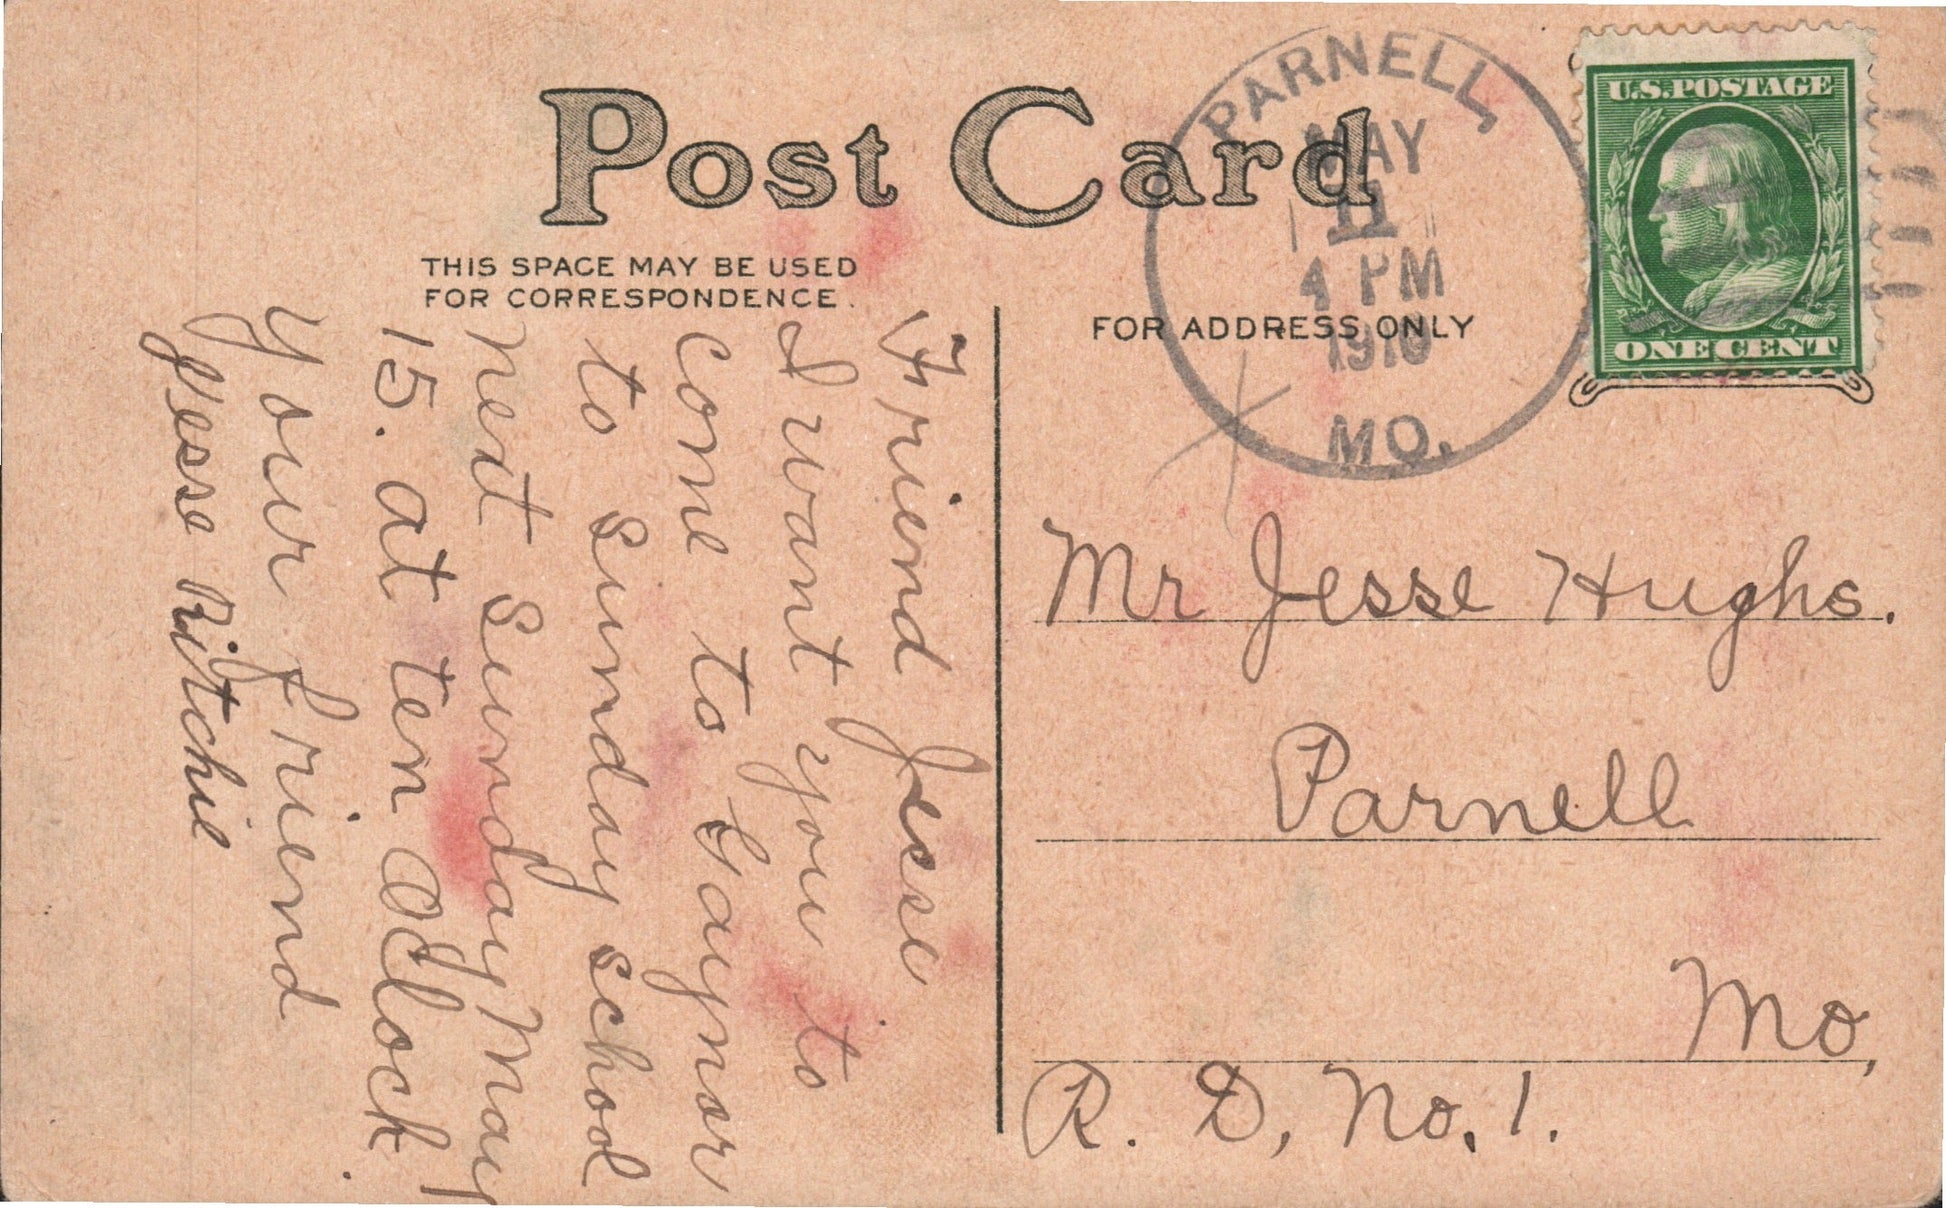 Post Card
THIS SPACE MAY BE USED
FOR CORRESPONDENCE.
FOR ADDRESS ONLY
PARNELL,
MAY
11
4 PM
1910
MO.
U.S. POSTAGE
ONE CENT
Friend Jesse
I want you to
come to Gaynor
to Sunday school
next Sunday May
15. at ten Oclock.
Your friend
Jesse Ritchie
Mr Jesse Hughs.
Parnell
Mo,
R. D, No. 1.